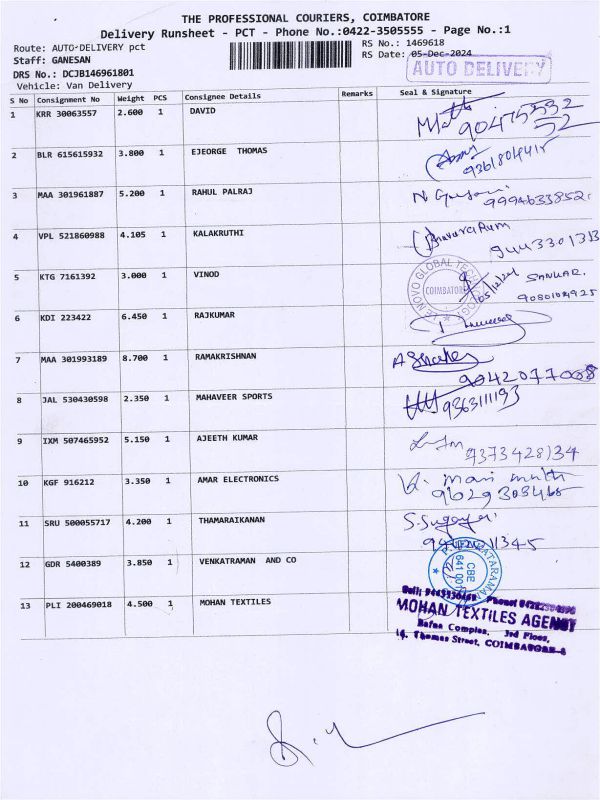 THE PROFESSIONAL COURIERS, COIMBATORE
Delivery Runsheet - PCT - Phone No.:0422-3505555 - Page No.:1
Route: AUTO-DELIVERY pct RS No.: 1469618
Staff: GANESAN RS Date: 05-Dec-2024
DRS No.: DCJB146961801 AUTO DELIVERY
Vehicle: Van Delivery
S No Consignment No Weight PCS Consignee Details Remarks Seal & Signature
1 KRR 30063557 2.600 1 DAVID
2 BLR 615615932 3.800 1 EJEORGE THOMAS
3 MAA 301961887 5.200 1 RAHUL PALRAJ 9994633852
4 VPL 521860988 4.105 1 KALAKRUTHI
5 KTG 7161392 3.000 1 VINOD COIMBATORE 05/12/24 SANKAR.
6 KDI 223422 6.450 1 RAJKUMAR
7 MAA 301993189 8.700 1 RAMAKRISHNAN
8 JAL 530430598 2.350 1 MAHAVEER SPORTS 9363111193
9 IXM 507465952 5.150 1 AJEETH KUMAR
10 KGF 916212 3.350 1 AMAR ELECTRONICS
11 SRU 500055717 4.200 1 THAMARAIKANAN
12 GDR 5400389 3.850 1 VENKATRAMAN AND CO CBE
13 PLI 200469018 4.500 1 MOHAN TEXTILES
MOHAN TEXTILES AGENCY
3rd Floor,
14, Thomas Street, COIMBATORE-1